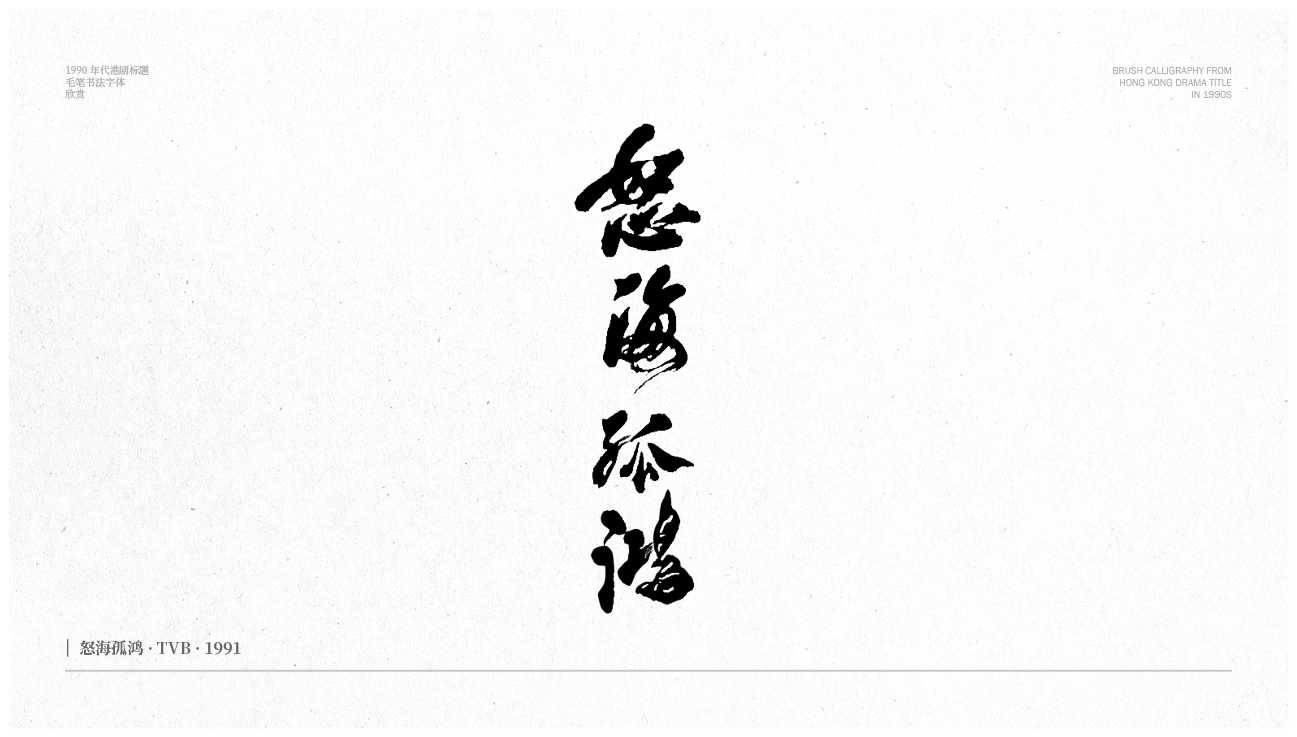 1990 年代港剧标题
毛笔书法字体
欣赏
BRUSH CALLIGRAPHY FROM
HONG KONG DRAMA TITLE
IN 1990S
怒
海
孤
鴻
怒海孤鸿 · TVB · 1991